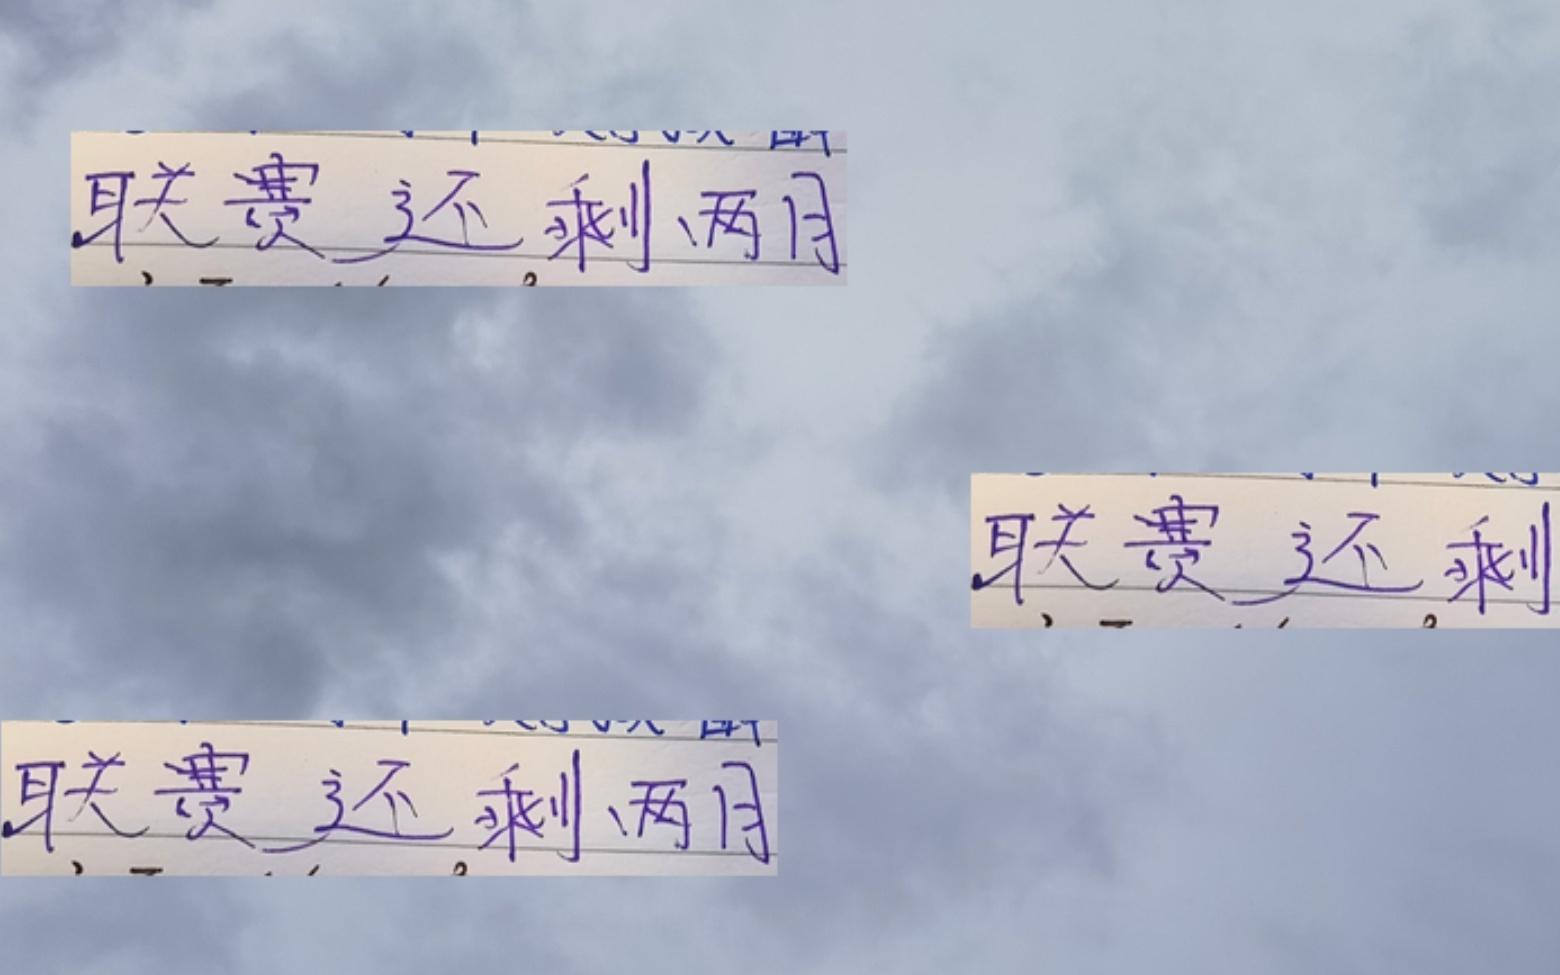 联赛还剩两月
联赛还剩
联赛还剩两月